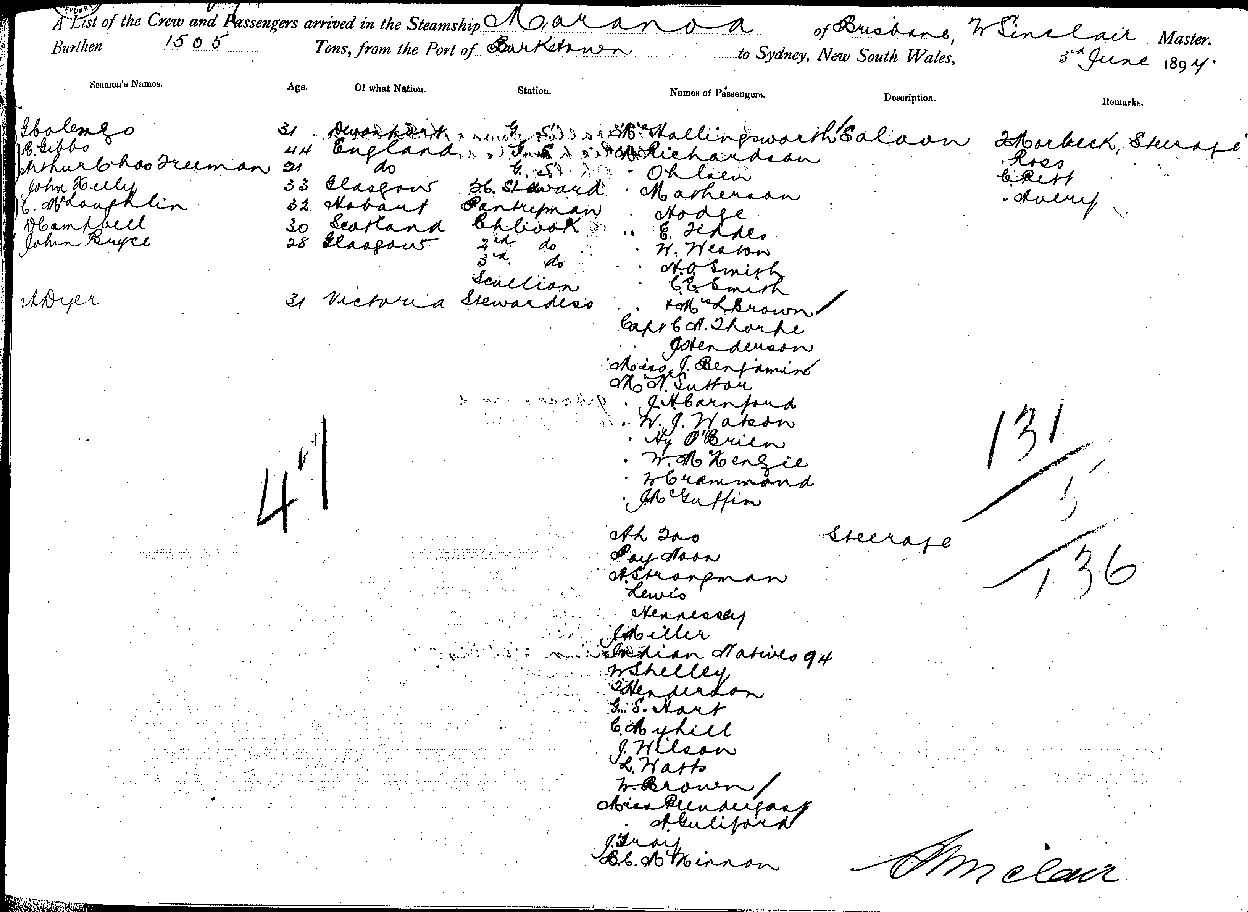 A List of the Crew and Passengers arrived in the Steamship Maranoa of Brisbane, W Sinclair Master.
Burthen 1505 Tons, from the Port of Burketown to Sydney, New South Wales, 5th June 1894.
Seamen's Names. Age. Of what Nation. Station. Names of Passengers. Description. Remarks.
31 G. S. Mr Hallingsworth Saloon Steerage
E Gibbs 44 England Richardson Ross
Arthur Chas Freeman 21 do G. S. Ohlsen C. Pett
John Kelly 33 Glasgow Steward Matherson Avery
C. McLoughlin 32 Hobart Pantryman Hodge
D Campbell 30 Scotland Ch Cook E. Feddes
John Bryce 28 Glasgow 2nd do W. Weston
3rd do A. O Smith
Scullion C. E. Smith
A Dyer 31 Victoria Stewardess Mrs L Brown
Capt C A. Thorpe
J Henderson
Miss J. Benjamin
Mr N. Suttor
J. A Carnford
W. J. Watson
Hy O'Brien
W. McKenzie
W Crammond
J McGuffin
41
131
5
136
Ah Foo Steerage
Pay Noon
A Strongman
Lewis
Hennessey
J Miller
Indian Natives 94
W Shelley
Henderson
G. S. Hart
C. Myhill
J. Wilson
L. Watts
W. Brown
Miss Prendergast
A Guliford
J. Troy
McKinnon
W Sinclair